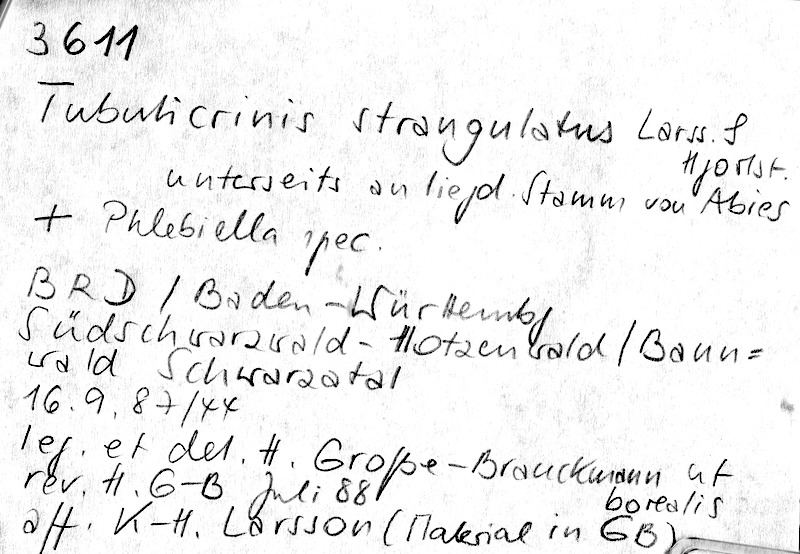 3611
Tubulicrinis strangulatus Larss. &
Hjortst.
unterseits an liegd. Stamm von Abies
+ Phlebiella spec.
BRD / Baden-Württembg
Südschwarzwald-Hotzenwald / Bann=
wald Schwarzatal
16.9.87/44
leg. et det. H. Große-Brauckmann ut
borealis
rev. H. G-B Juli 88
aff. K-H. Larsson (Material in GB)